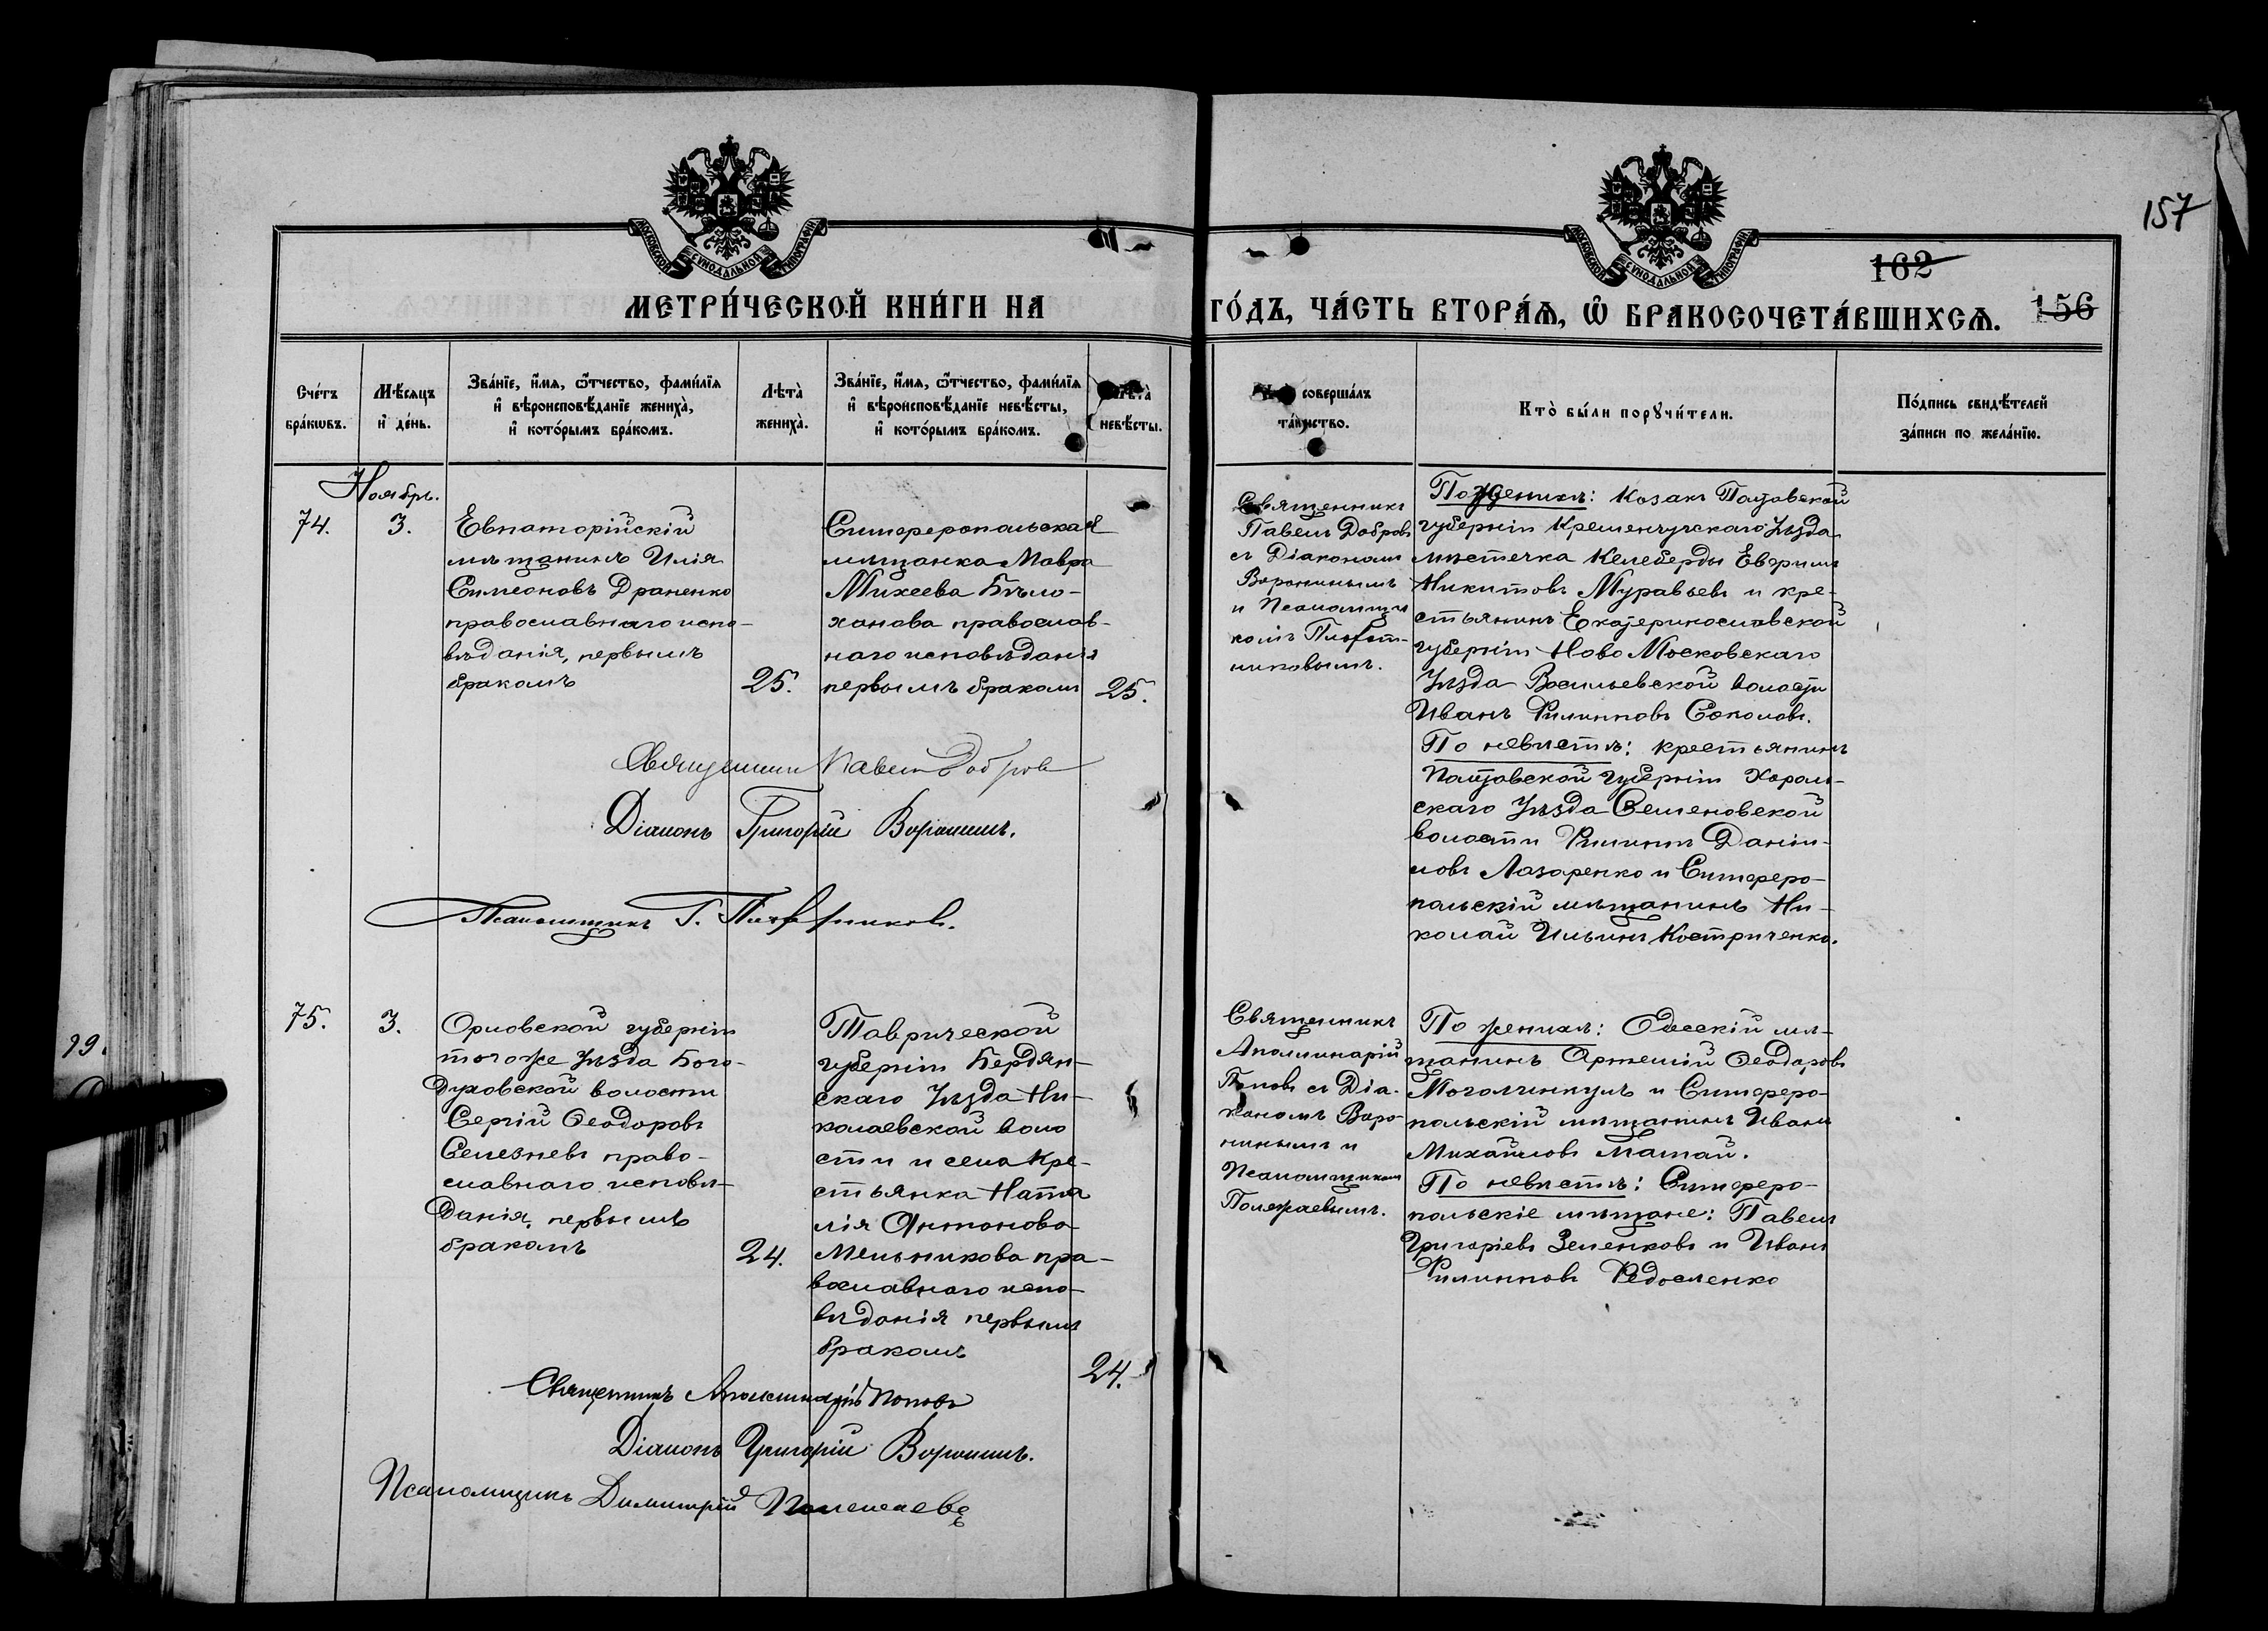 157
162
156
МОСКОВСКОЙ СѴНОДАЛЬНОЙ ТИПОГРАФІИ
МОСКОВСКОЙ СѴНОДАЛЬНОЙ ТИПОГРАФІИ
МЕТРИ́ЧЕСКОЙ КНИ́ГИ НА ГО́ДЪ, ЧА́СТЬ ВТОРА́Ѧ, Ѡ҆ БРАКОСОЧЕТА́ВШИХСѦ.
Сче́тъ
бра́кѡвъ.
Мѣ́сяцъ
и҆ де́нь.
Зва́нїе, и҆́мѧ, ѻ҆́тчество, фами́лїѧ
и҆ вѣроисповѣ́данїе жениха̀,
и҆ кото́рымъ бра́комъ.
Лѣта̀
жениха̀.
Зва́нїе, и҆́мѧ, ѻ҆́тчество, фами́лїѧ
и҆ вѣроисповѣ́данїе невѣ́сты,
и҆ кото́рымъ бра́комъ.
Лѣта̀
невѣ́сты.
Кто̀ соверша́лъ
та́инство.
Кто̀ бы́ли порꙋчи́тели.
По́дпись свидѣ́телей
за́писи по жела́нїю.
Ноябрь.
74.
3.
Евпаторійскій
мѣщанинъ Илія
Симеоновъ Драненко
православнаго испо-
вѣданія, первымъ
бракомъ
25.
Симферопольская
мѣщанка Мавра
Михеева Бѣло-
ханова православ-
наго исповѣданія
первымъ бракомъ
25.
Священникъ
Павелъ Добровъ
съ Діакономъ
Воронинымъ
и Псаломщи
комъ
По жениху: козакъ Полтавской
губерніи Кременчугскаго Уѣзда
мѣстечка Келеберды Евфимъ
Никитовъ Муравьевъ и кре-
стьянинъ Екатеринославской
губерніи Ново Московскаго
Уѣзда Васильевской волости
Иванъ Филипповъ Соколовъ.
По невѣстѣ: крестьянинъ
Полтавской губерніи Хороль-
скаго Уѣзда Семеновской
волости Филиппъ Даніи-
ловъ Лазаренко и Симферо-
польскій мѣщанинъ Ни-
колай Ильинъ Костриченко.
Священникъ Павелъ Добровъ
Діаконъ Григорій Воронинъ.
Псаломщикъ Г.
75.
3.
Орловской губерніи
того же Уѣзда Бого-
духовской волости
Сергій Ѳеодоровъ
Селезневъ право-
славнаго исповѣ-
данія, первымъ
бракомъ
24.
Таврической
губерніи Бердян-
скаго Уѣзда Ни-
колаевской воло
сти и села кре-
стьянка Ната
лія Антонова
Мельникова пра-
вославнаго испо-
вѣданія первымъ
бракомъ
24.
Священникъ
Аполлинарій
Поповъ съ Діа-
кономъ Воро-
нинымъ и
Псаломщикомъ
Полежаевымъ.
По женихѣ: Одесскій мѣ-
щанинъ Артемій Ѳеодоровъ
и Симферо-
польскій мѣщанинъ Иванъ
Михайловъ Матай.
По невѣстѣ: Симферо-
польскіе мѣщане: Павелъ
Григоріевъ Зеленковъ и Иванъ
Филипповъ Федосленко
Священникъ Аполлинарій Поповъ
Діаконъ Григорій Воронинъ.
Псаломщикъ Димитрій Полежаевъ
99.